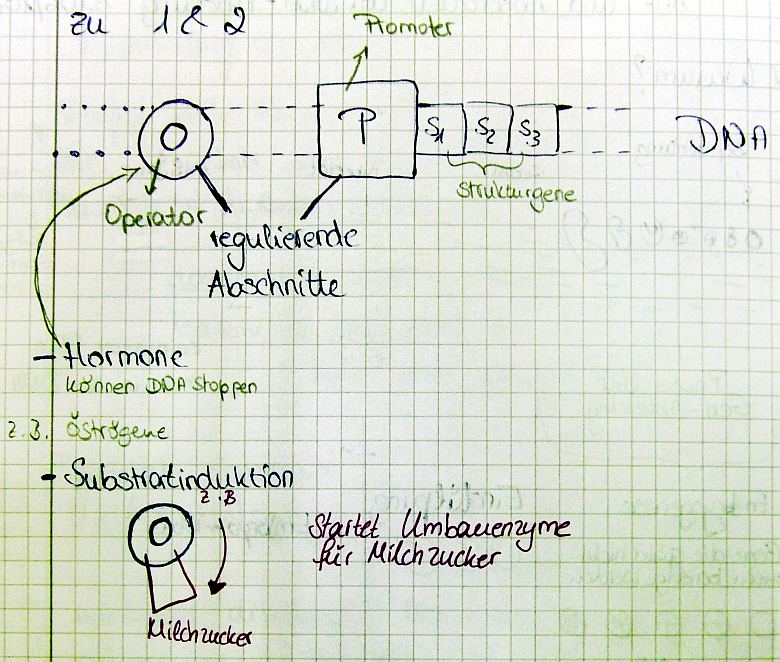 zu 1 & 2
Promoter
P
S1 S2 S3
DNA
Strukturgene
Operator
regulierende
Abschnitte
- Hormone
können DNA stoppen
z.B. Öströgene
- Substratinduktion
z.B
Startet Umbauenzyme
für Milchzucker
Milchzucker